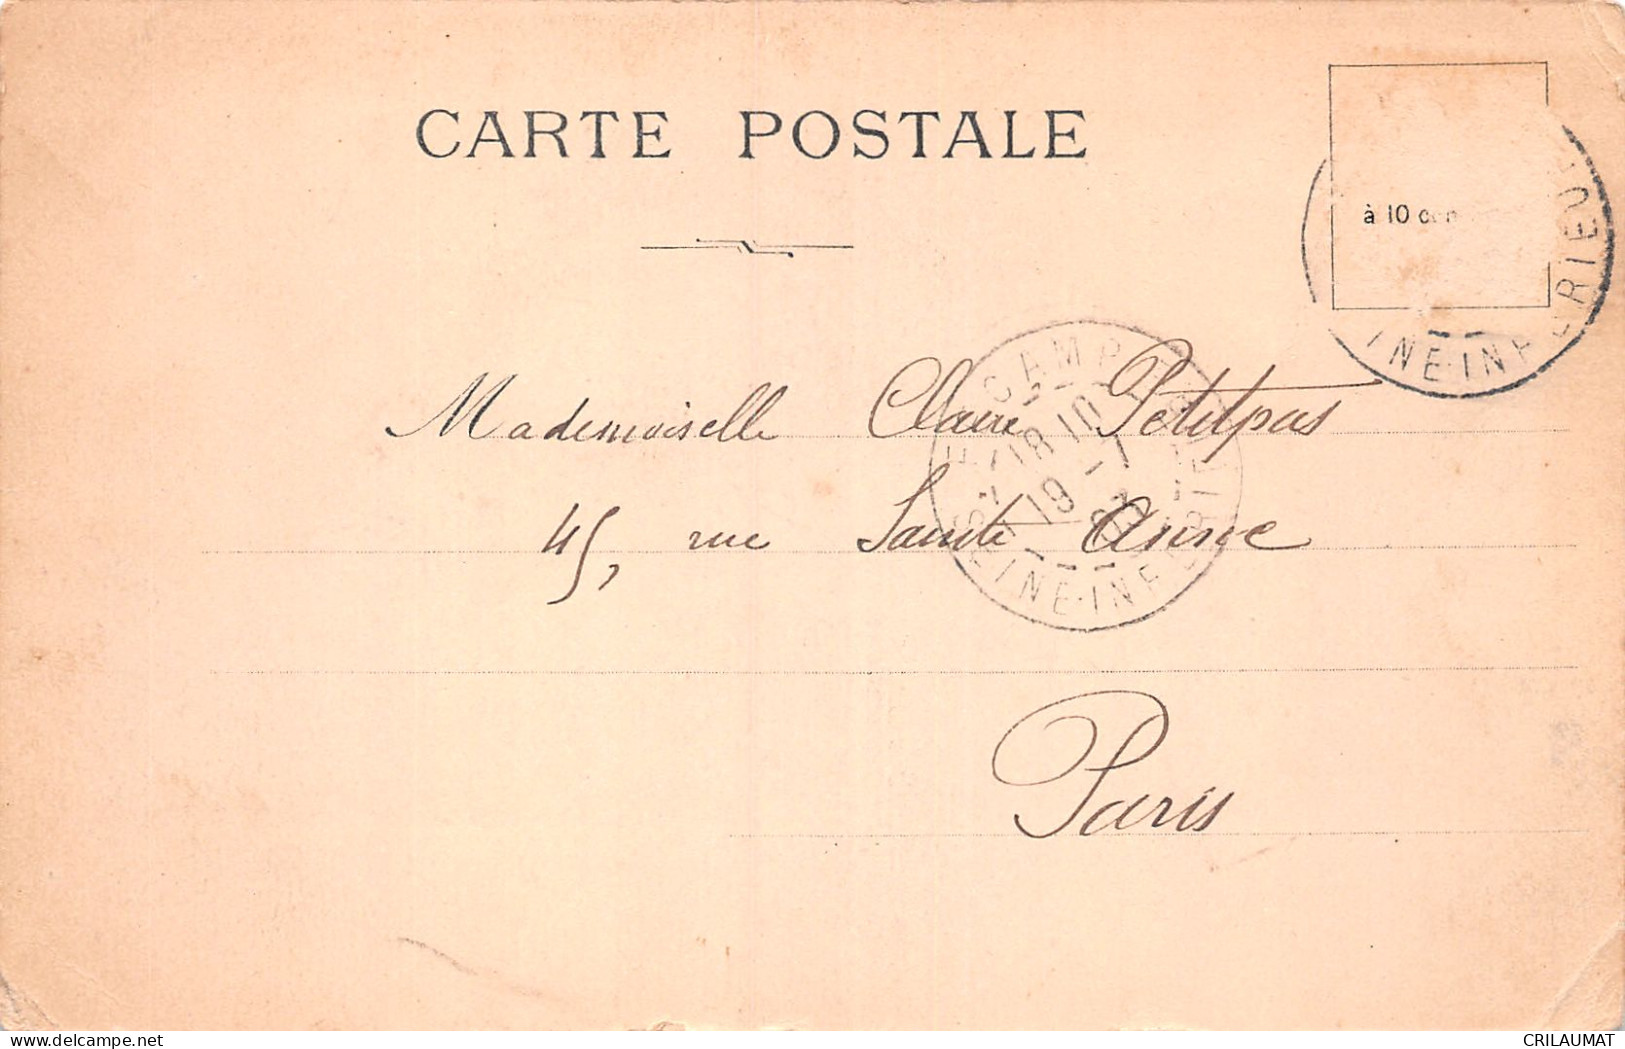 CARTE POSTALE
à 10 cen
INE-INFÉRIEU
CAMP
18 10
19 -1
SEINE-INFÉRIE
Mademoiselle Claire Petitpas
45, rue Sainte Anne
Paris
delcampe.net
CRILAUMAT